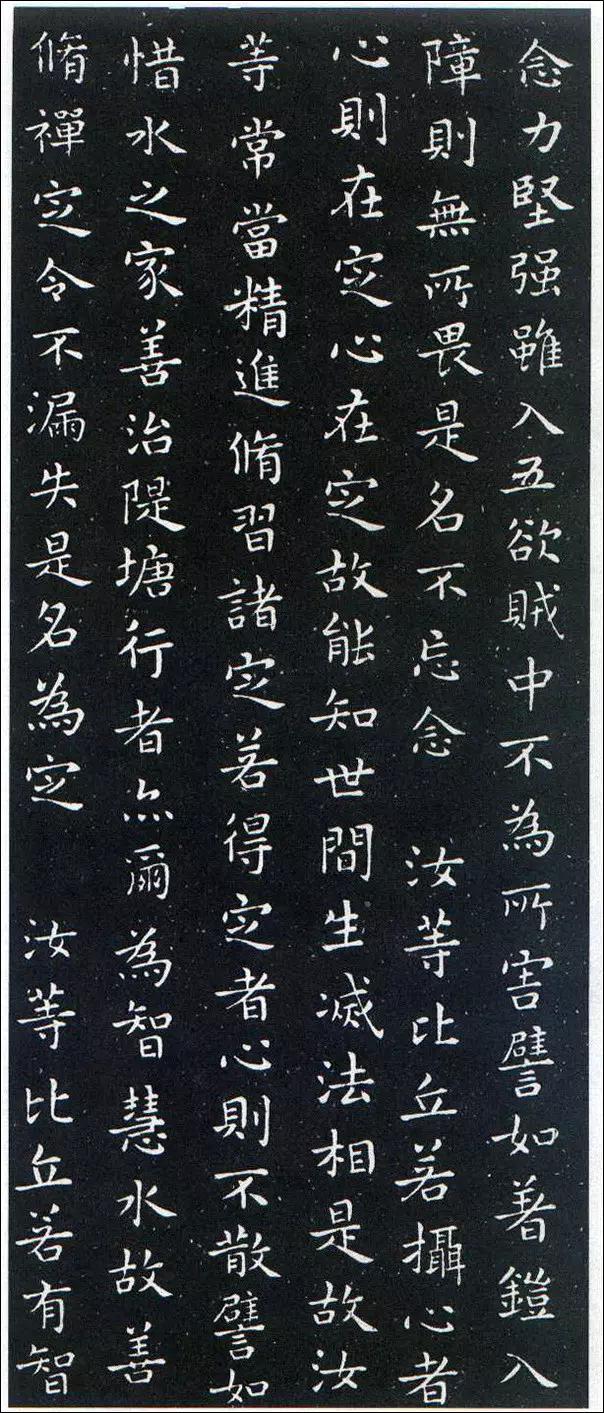 念力堅强雖入五欲賊中不為所害譬如著鎧入
障則無所畏是名不忘念　汝等比丘若攝心者
心則在定心在定故能知世間生滅法相是故汝
等常當精進脩習諸定若得定者心則不散譬如
惜水之家善治隄塘行者亦爾為智慧水故善
脩禪定令不漏失是名為定　汝等比丘若有智